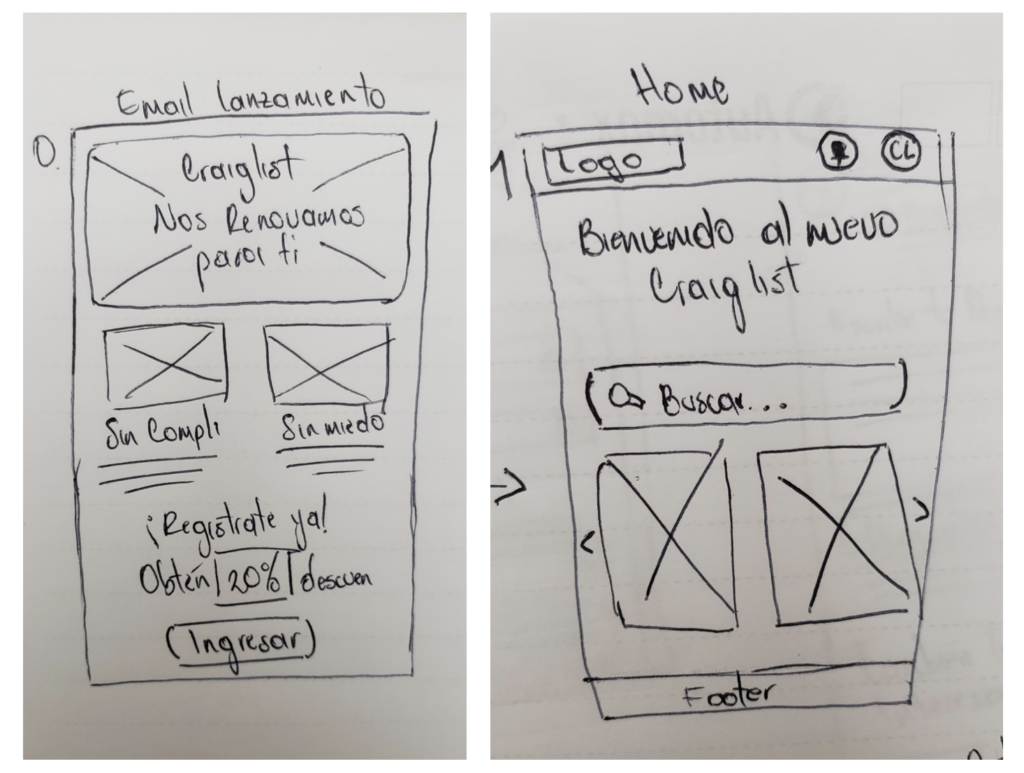 Email lanzamiento
0.
Craiglist
Nos Renovamos
para ti
Sin Compli
Sin miedo
¡Registrate ya!
Obtén 20% descuen
Ingresar
Home
1
Logo
CL
Bienvenido al nuevo
Craiglist
Buscar...
Footer